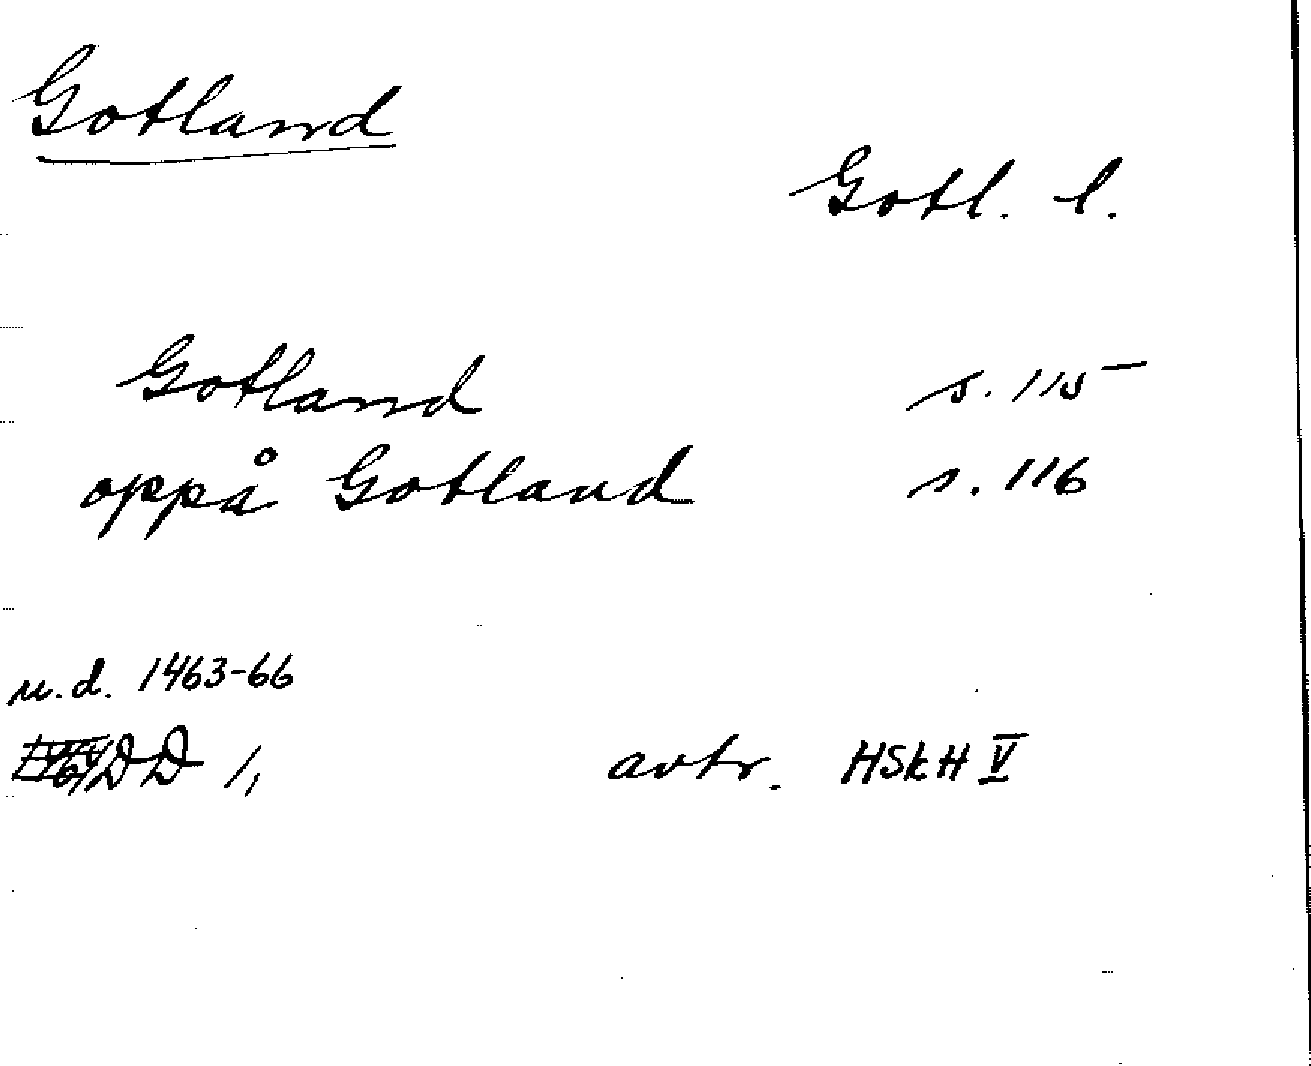 Gotland
Gotl. l.
Gotland s. 115
oppå Gotland s. 116
u.d. 1463-66
DD 1, avtr. HSkH V